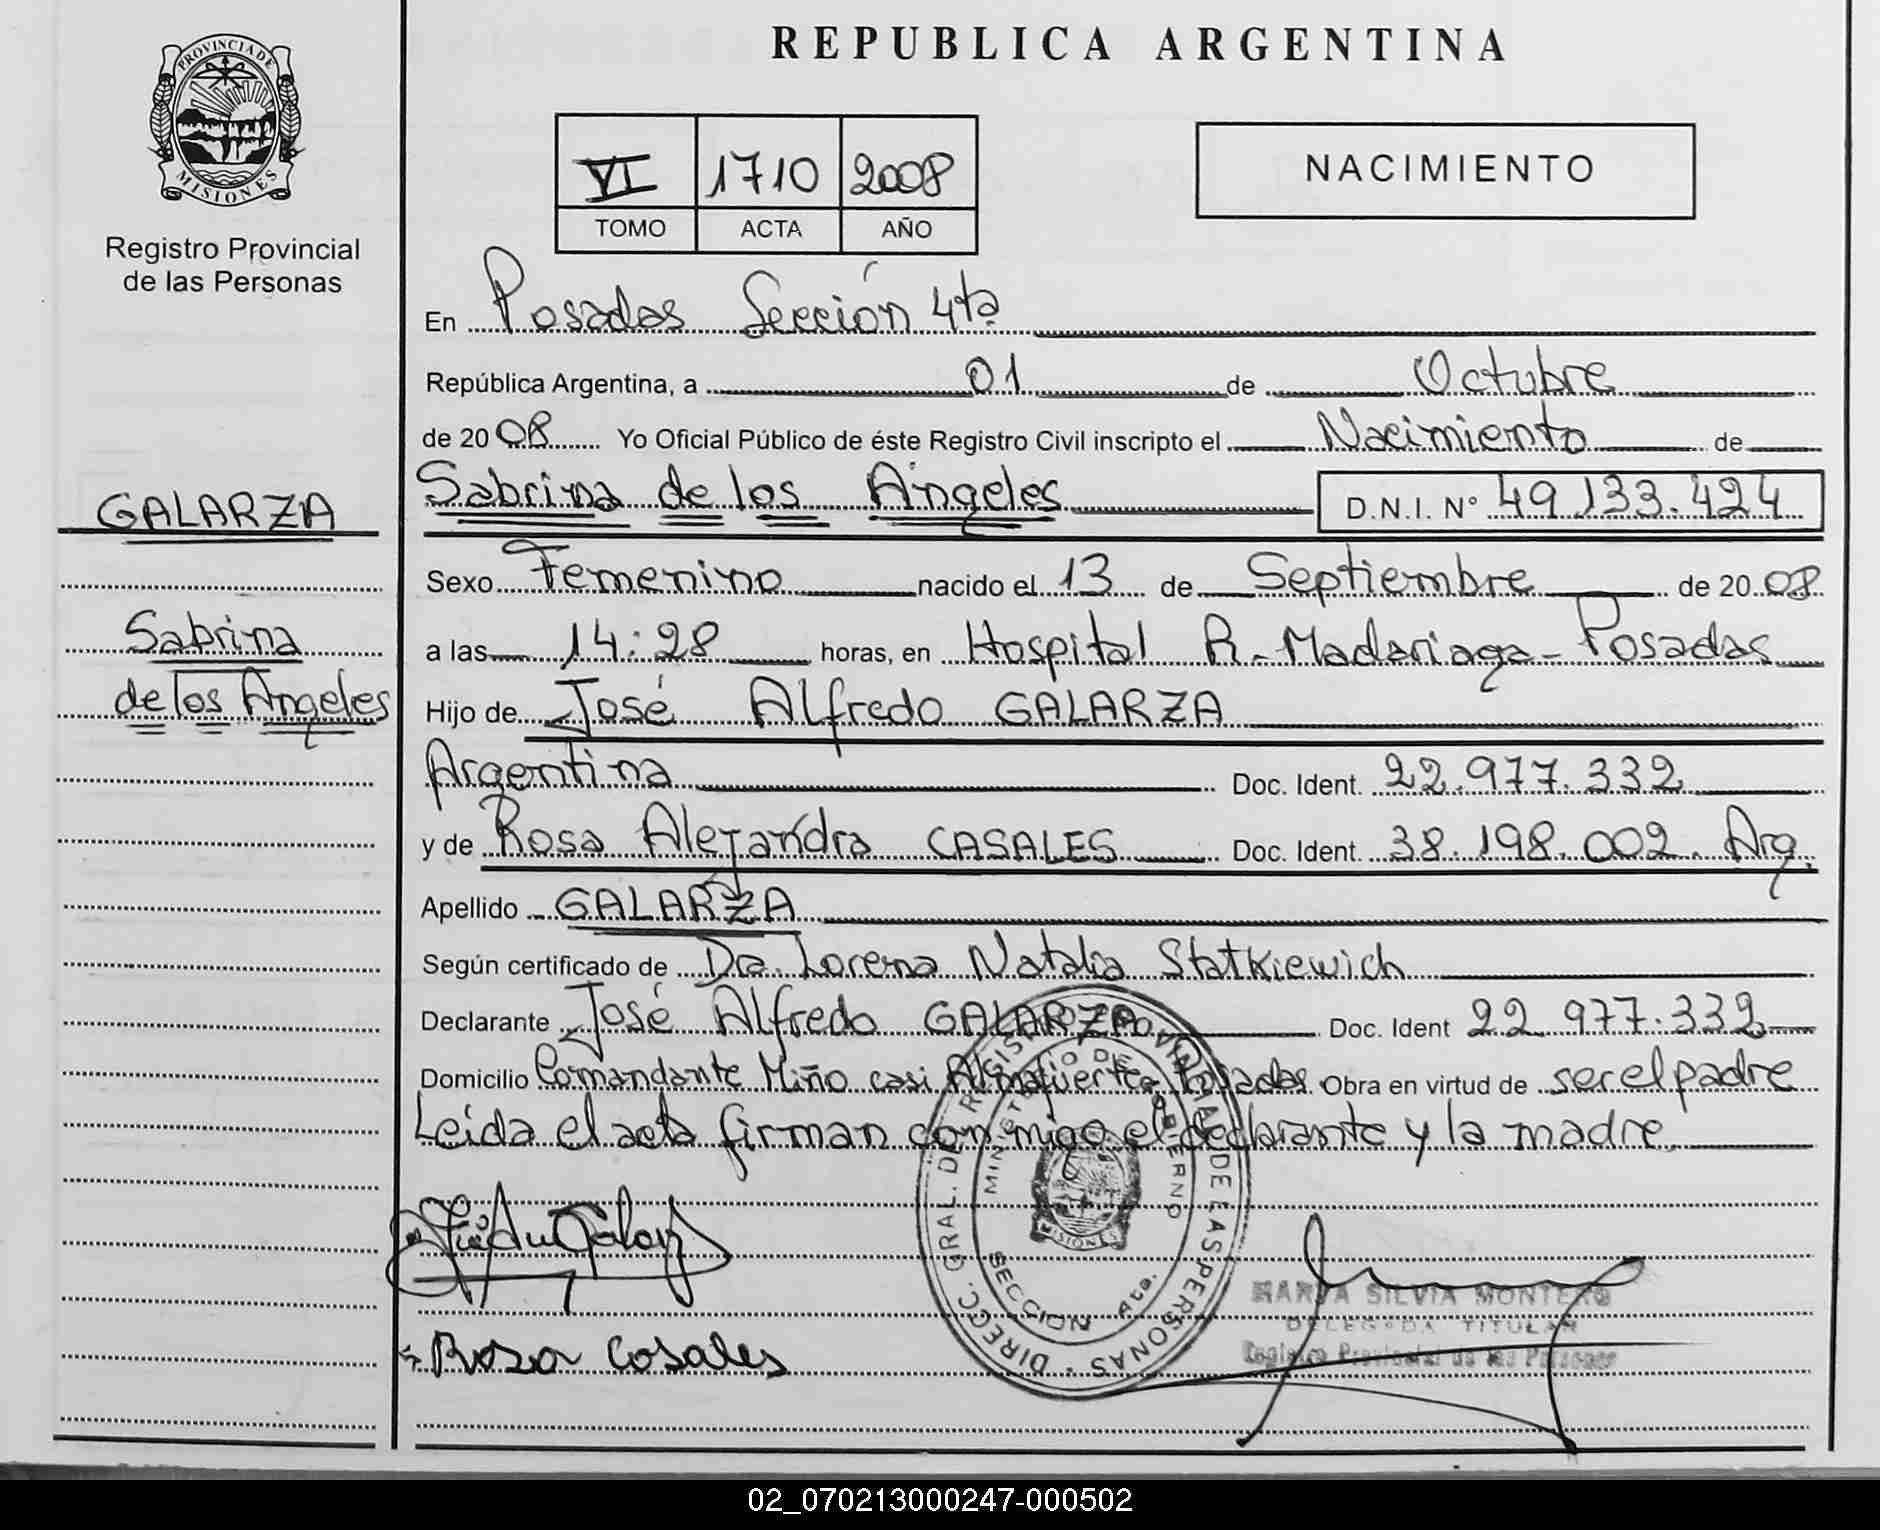 PROVINCIA DE
MISIONES
Registro Provincial
de las Personas
GALARZA
Sabrina
de los Angeles
REPUBLICA ARGENTINA
VI 1710 2008
TOMO ACTA AÑO
NACIMIENTO
En Posadas Sección 4ta
República Argentina, a 01 de Octubre
de 2008 Yo Oficial Público de éste Registro Civil inscripto el Nacimiento de
Sabrina de los Angeles D.N.I. Nº 49.133.424
Sexo Femenino nacido el 13 de Septiembre de 2008
a las 14:28 horas, en Hospital R. Madariaga - Posadas
Hijo de José Alfredo GALARZA
Argentina Doc. Ident. 22.977.332
y de Rosa Alejandra CASALES Doc. Ident. 38.198.002. Arg.
Apellido GALARZA
Según certificado de Dra. Lorena Natalia Statkiewich
Declarante José Alfredo GALARZA Doc. Ident 22.977.332
Domicilio Comandante Miño casi Almafuerte Posadas Obra en virtud de ser el padre
Leida el acta firman conmigo el declarante y la madre
DIRECC. GRAL. DE REGISTRO PROVINCIAL DE LAS PERSONAS
MINISTERIO DE GOBIERNO
MISIONES
SECCION 4ta.
Rosa Casales
MARIA SILVIA MONTERO
DELEGADA TITULAR
Registro Provincial de las Personas
02_070213000247-000502